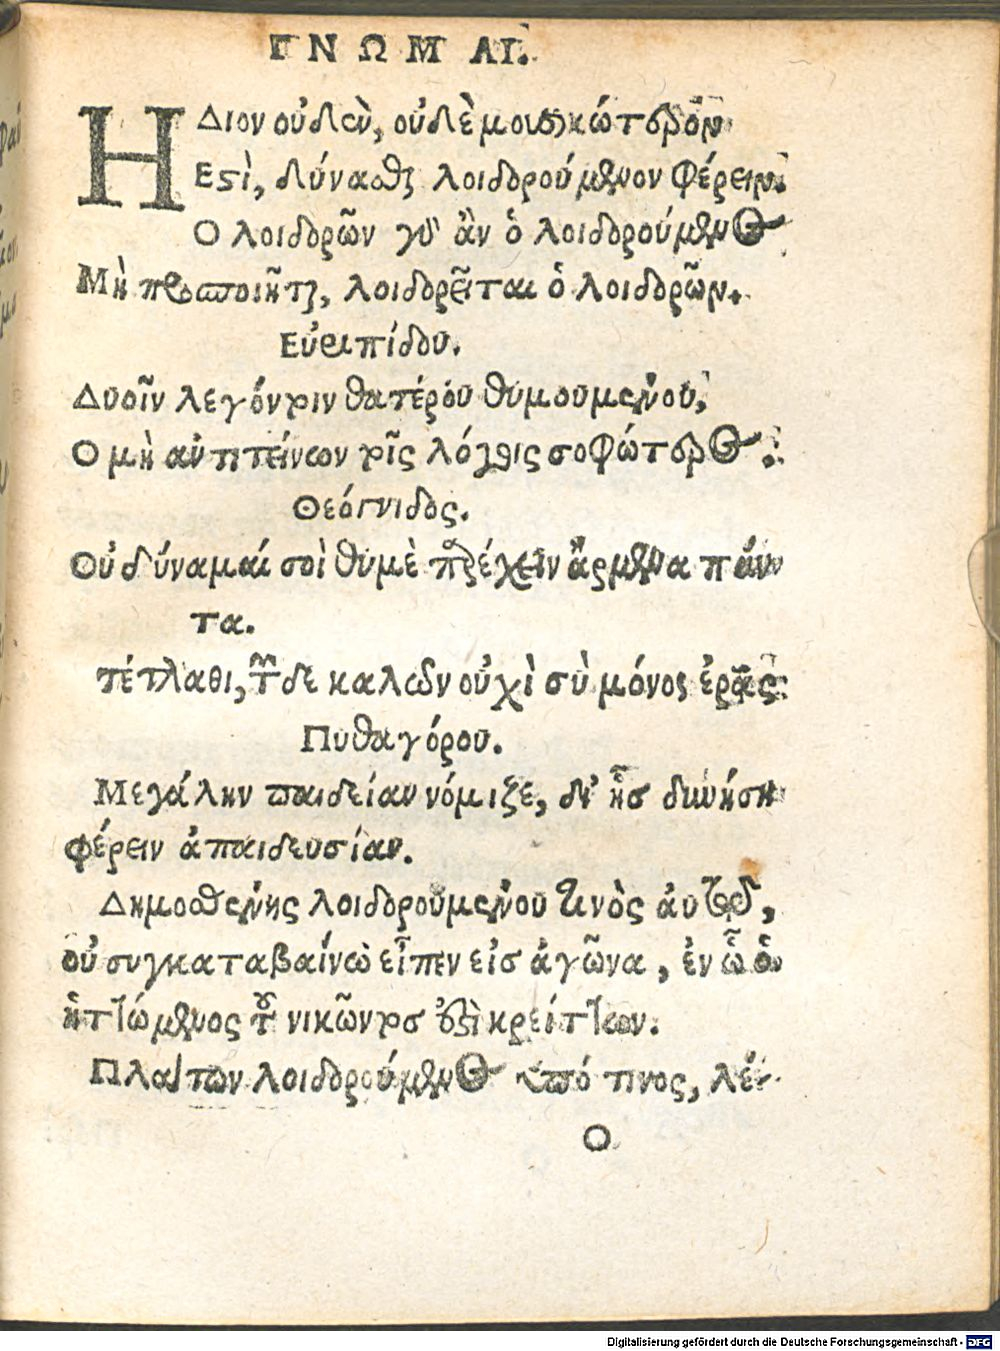 ΓΝΩΜΑΙ.
ΗΔιον οὐδὲν, οὐδὲ μουσικώτερον
Εστὶ, δύνασθαι λοιδορούμενον φέρειν.
Ο λοιδορῶν γὸ ἂν ὁ λοιδορούμενος
Μὴ προσποιῆται, λοιδορεῖται ὁ λοιδορῶν.
Εὐριπίδου.
Δυοῖν λεγόντοιν θατέρου θυμουμένου,
Ο μὴ ἀντιτείνων τοῖς λόγοις σοφώτερος.
Θεόγνιδος.
Οὐ δύναμαί σοὶ θυμὲ παρέχειν ἄρμενα πάν
τα.
τέτλαθι, τῶν δε καλῶν οὐχὶ σὺ μόνος ἐρᾷς
Πυθαγόρου.
Μεγάλην παιδείαν νόμιζε, δι' ἧς δυνήσῃ
φέρειν ἀπαιδευσίαν.
Δημοσθένης λοιδορουμένου τινὸς ἀυτῷ,
οὐ συγκαταβαίνω εἶπεν εἰς ἀγῶνα, ἐν ᾧ ὁ
ἡττώμενος τοῦ νικῶντος ἐστὶ κρείττων.
Πλάτων λοιδορούμενος ὑπό τινος, λέ
Ο
Digitalisierung gefördert durch die Deutsche Forschungsgemeinschaft - DFG